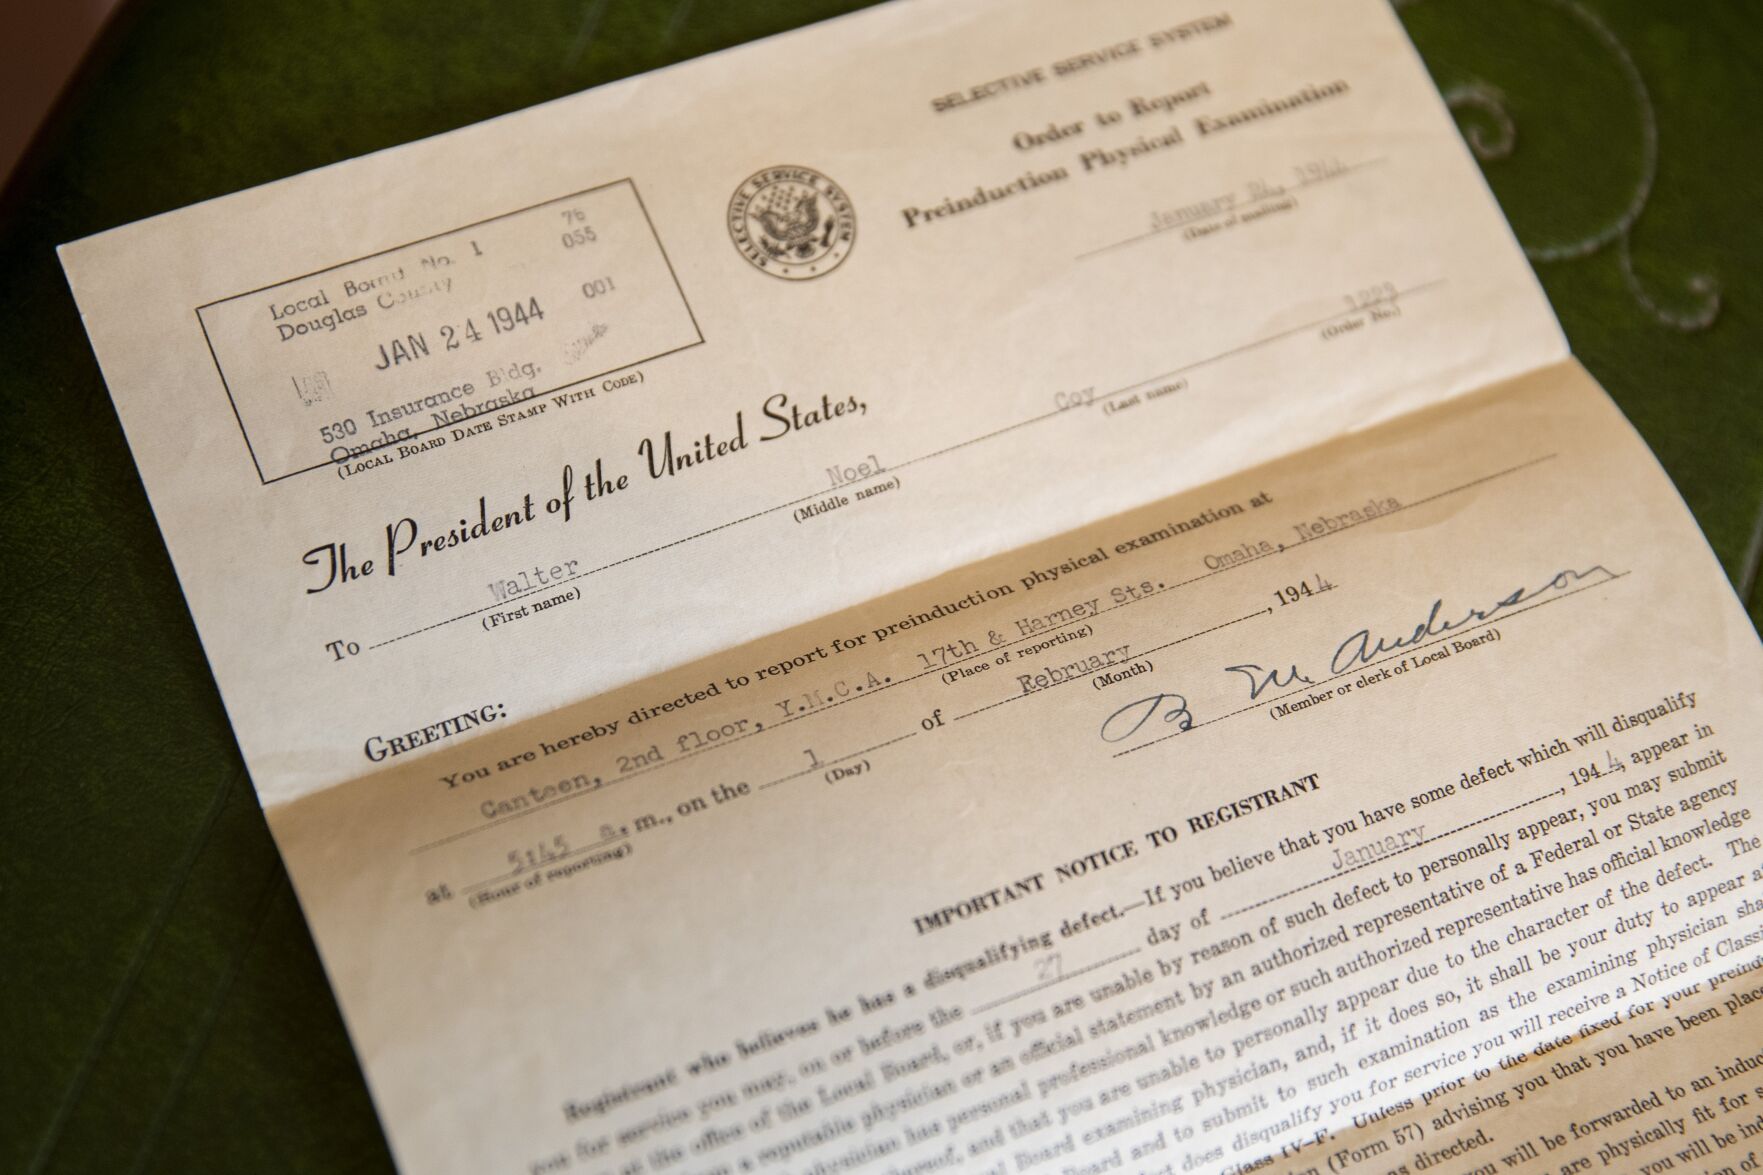 SELECTIVE SERVICE SYSTEM
Order to Report
Preinduction Physical Examination
January 24, 1944
(Date of mailing)
SELECTIVE SERVICE SYSTEM
Local Board No. 1 76
Douglas County 055
JAN 24 1944 001
530 Insurance Bldg.
Omaha, Nebraska
(LOCAL BOARD DATE STAMP WITH CODE)
(Order No.)
The President of the United States,
To Walter Noel Coy
(First name) (Middle name) (Last name)
GREETING:
You are hereby directed to report for preinduction physical examination at
Canteen, 2nd floor, Y.M.C.A. 17th & Harney Sts. Omaha, Nebraska
(Place of reporting)
at 5:45 a.m., on the 1 of Rebruary, 1944
(Hour of reporting) (Day) (Month)
B M Anderson
(Member or clerk of Local Board)
IMPORTANT NOTICE TO REGISTRANT
Registrant who believes he has a disqualifying defect.—If you believe that you have some defect which will disqualify
you for service you may, on or before the 27 day of January, 1944, appear in
at the office of the Local Board, or, if you are unable by reason of such defect to personally appear, you may submit
a reputable physician or an official statement by an authorized representative of a Federal or State agency
physician has personal professional knowledge or such authorized representative has official knowledge
thereof, and that you are unable to personally appear due to the character of the defect. The
Local Board examining physician, and, if it does so, it shall be your duty to appear
Board and to submit to such examination as the examining physician
defect does disqualify you for service you will receive a Notice of
Class IV-F. Unless prior to the date fixed for your
(Form 57) advising you that you have been
as directed.
you will be forwarded to an
are physically fit for
you will be